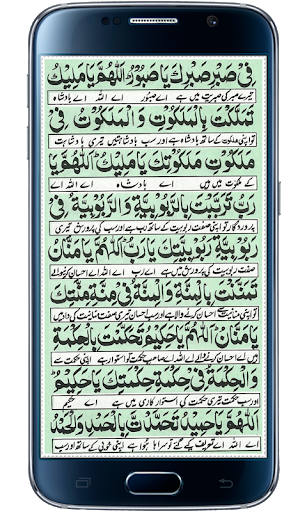 فِيْ صَبْرِ صَبْرِكَ يَا صَبُوْرُ اَللّٰهُمَّ يَا مَلِيْكُ
تیرے صبر کی صبریت میں ہے اے صبور اے اللہ اے بادشاہ
تَمَلَّكْتَ بِالْمَلَكُوْتِ وَالْمَلَكُوْتُ فِيْ
تو اپنی ملکوت کے ساتھ بادشاہ ہے اور سب بادشاہتیں تیری بادشاہت
مَلَكُوْتِ مَلَكُوْتِكَ يَا مَلِيْكُ اَللّٰهُمَّ يَا
کے ملکوت میں ہیں اے بادشاہ اے اللہ اے
رَبُّ تَرَبَّبْتَ بِالرَّبُوْبِيَّةِ وَالرَّبُوْبِيَّةُ فِيْ
پروردگار تو اپنی صفت ربوبیت کے ساتھ رب ہے اور سب کی پرورش تیری
رَبُوْبِيَّةِ رَبُوْبِيَّتِكَ يَا رَبُّ اَللّٰهُمَّ يَا مَنَّانُ
صفت ربوبیت کی پرورش میں ہے اے رب اے اللہ اے احسان کرنیوالے
تَمَنَّنْتَ بِالْمِنَّةِ وَالْمِنَّةُ فِيْ مِنَّةِ مِنَّتِكَ
تو اپنی منانیت احسان کرنے والا ہے اور سب احسان تیری صفت منانیت کی داد ہیں
يَا مَنَّانُ اَللّٰهُمَّ يَا حَكِيْمُ تَحَكَّمْتَ بِالْحِكْمَةِ
اے احسان کرنے والے اے اللہ اے صاحب حکمت تو اپنی حکمت کے ساتھ استوار کار ہے
وَالْحِكْمَةُ فِيْ حِكْمَةِ حِكْمَتِكَ يَا حَكِيْمُ
اور سب حکمت تیری حکمت کی استوار کاری میں ہے اے حکیم
اَللّٰهُمَّ يَا حَمِيْدُ تَحَمَّدْتَ بِالْحَمْدِ وَالْحَمْدُ
اے اللہ اے تعریف کیے گئے تو سراہا ہوا ہے اپنی خوبی کے ساتھ اور سب